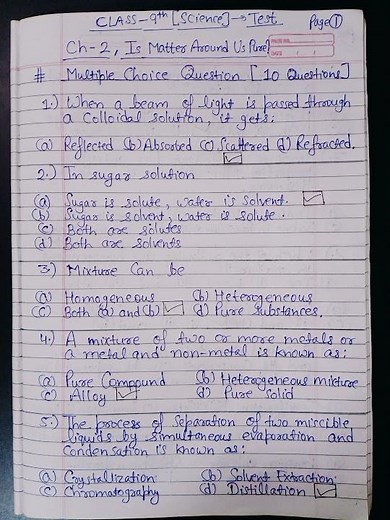 CLASS-9th [Science] → Test Page ①
Ch-2, Is Matter Around Us Pure?
DATE
# Multiple Choice Question [10 Questions]
1.) When a beam of light is passed through
a Colloidal solution, it gets:
(a) Reflected (b) Absorbed (c) Scattered (d) Refracted.
2.) In sugar solution
(a) Sugar is solute, water is solvent.
(b) Sugar is solvent, water is solute.
(c) Both are solutes
(d) Both are solvents
3.) Mixture Can be
(a) Homogeneous (b) Heterogeneous
(c) Both (a) and (b) (d) Pure substances.
4.) A mixture of two or more metals or
a metal and non-metal is known as:
(a) Pure Compound (b) Heterogeneous mixture
(c) Alloy (d) Pure solid
5.) The process of Separation of two miscible
liquids by simultaneous evaporation and
Condensation is known as:
(a) Crystallization (b) Solvent Extraction
(c) Chromatography (d) Distillation